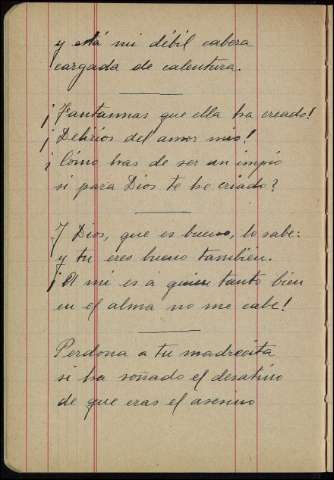 y está mi débil cabeza
cargada de calentura.
¡Fantasmas que ella ha creado!
¡Delirios del amor mio!
¿Cómo has de ser un impío
si para Dios te he criado?
Y Dios, que es bueno, lo sabe:
y tu eres bueno tambien.
¡A mi es a quien tanto bien
en el alma no me cabe!
Perdona a tu madrecita
si ha soñado el desatino
de que eras el asesino